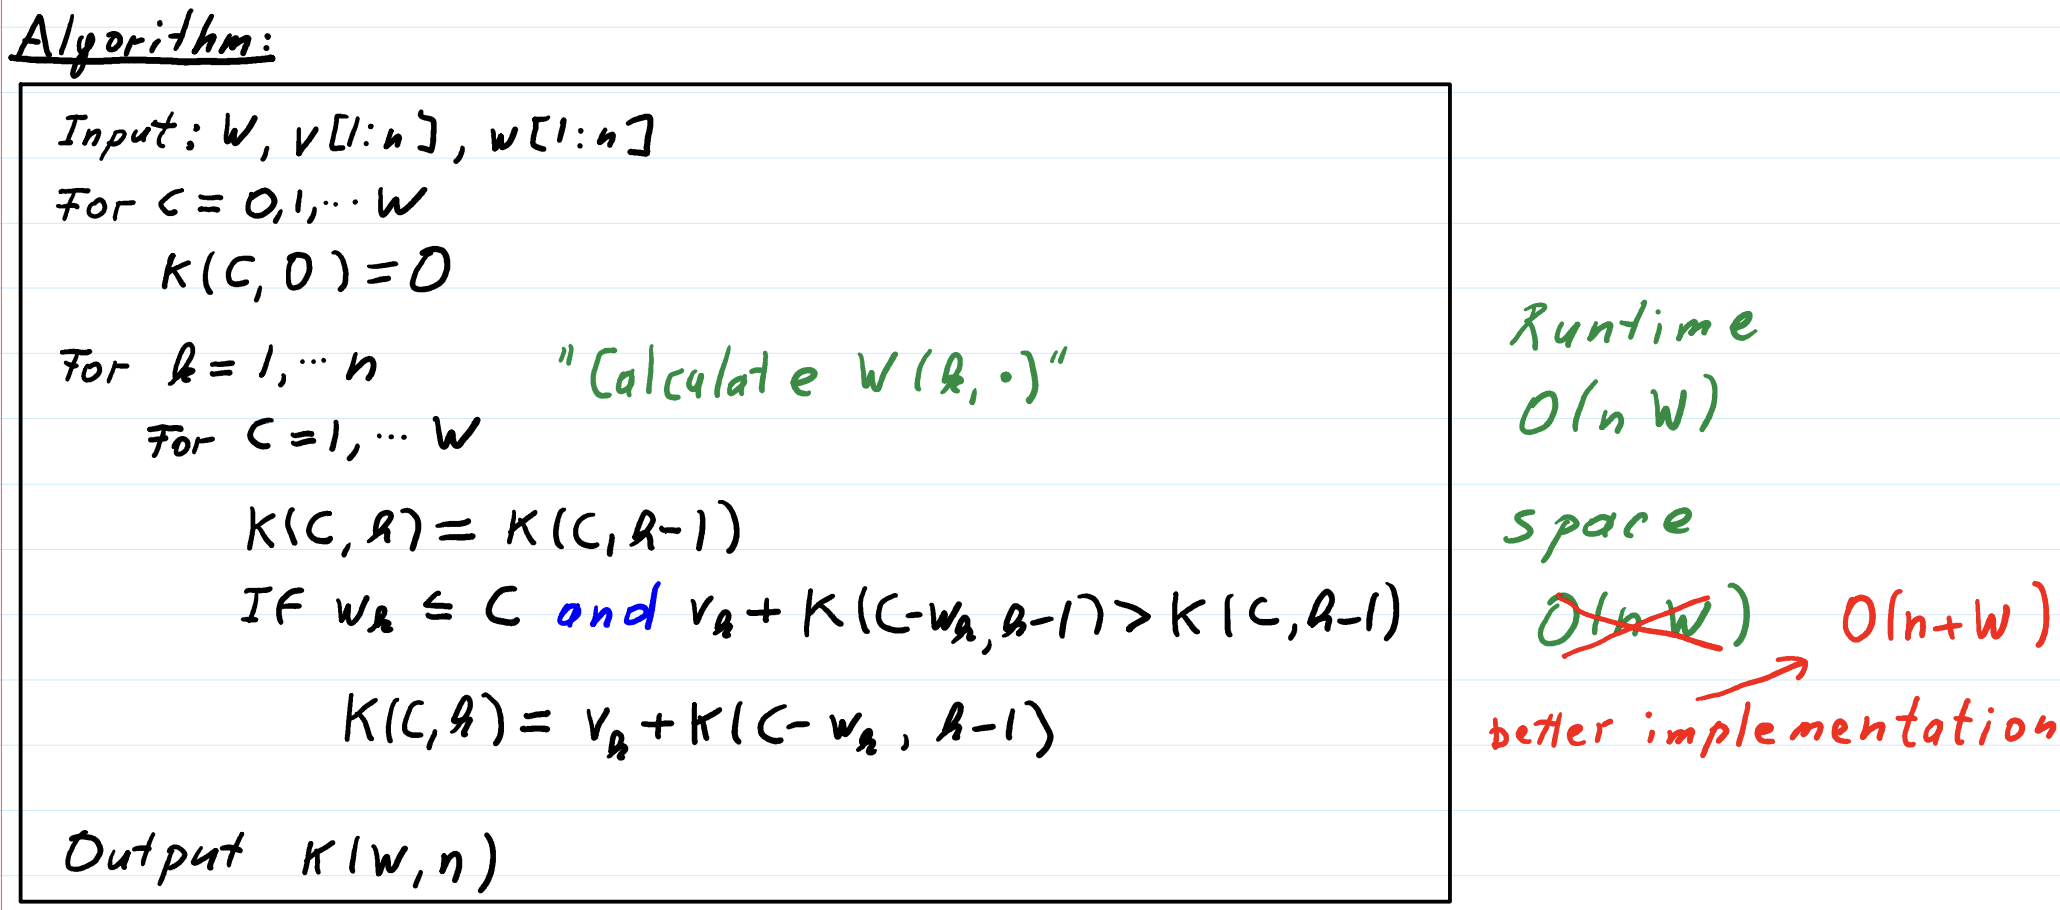 Algorithm:
Input: W, v[1:n], w[1:n]
For C = 0,1,... W
K(C, 0) = 0
For k = 1,... n "Calculate W(k, •)"
For C = 1, ... W
K(C, k) = K(C, k-1)
IF wₖ ≤ C and vₖ + K(C-wₖ, k-1) > K(C, k-1)
K(C, k) = vₖ + K(C - wₖ, k-1)
Output K(W, n)
Runtime
O(n W)
space
O(n W) O(n+W)
better implementation